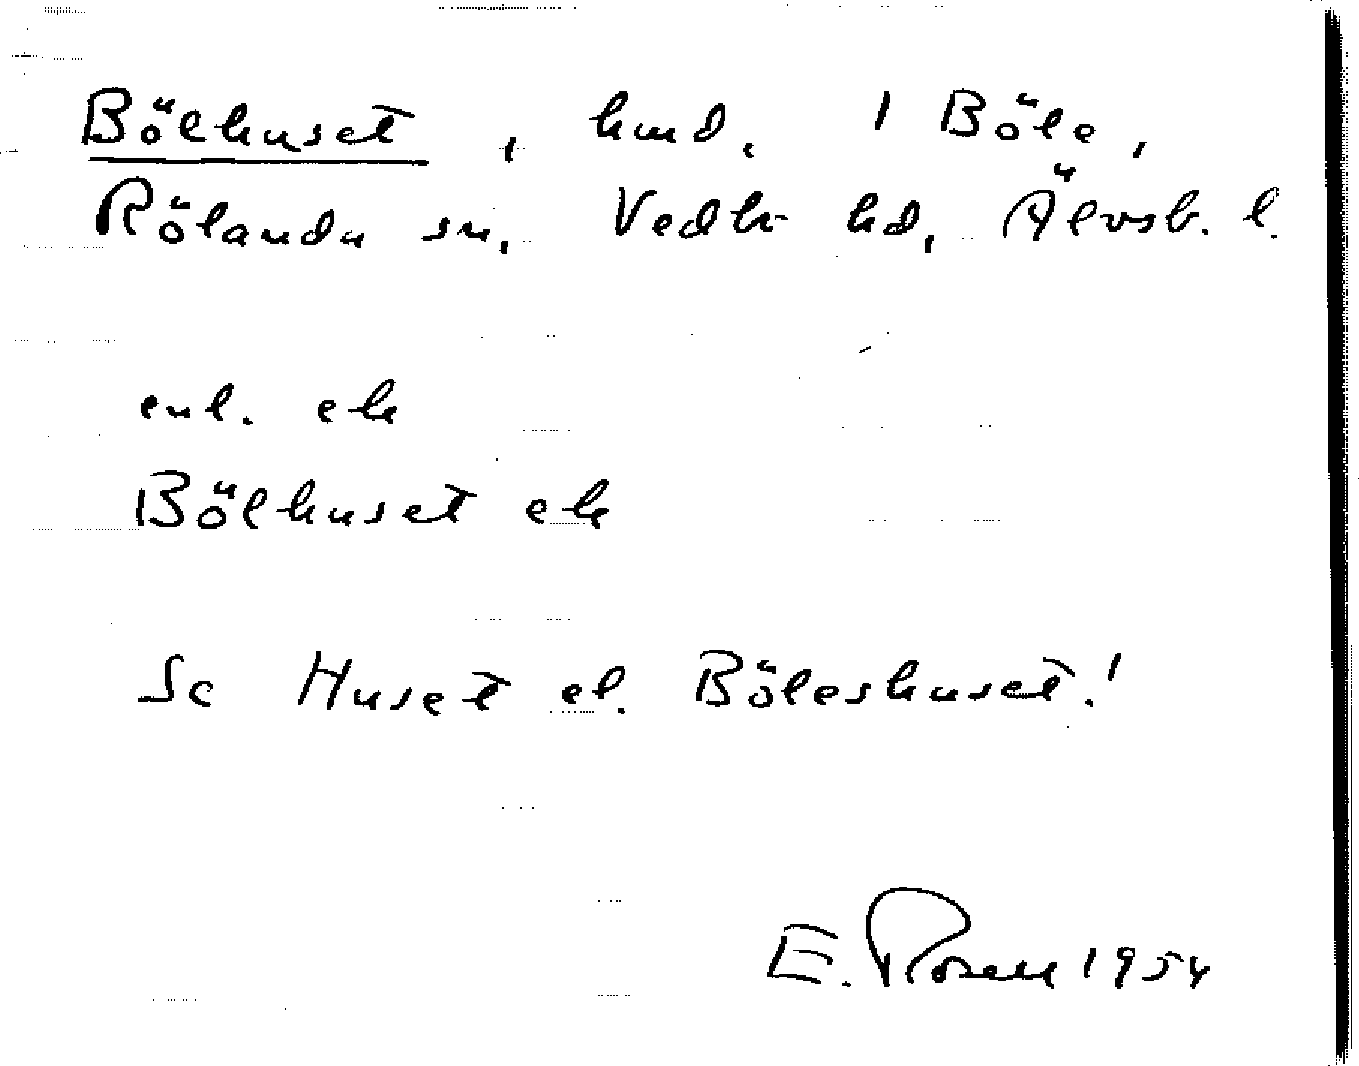 Bölhuset, hmd. 1 Böle,
Rölanda sn, Vedbo hd, Älvsb. l.
enl. ek
Bölhuset ek
Se Huset el. Böleshuset!
E. Rosell 1954